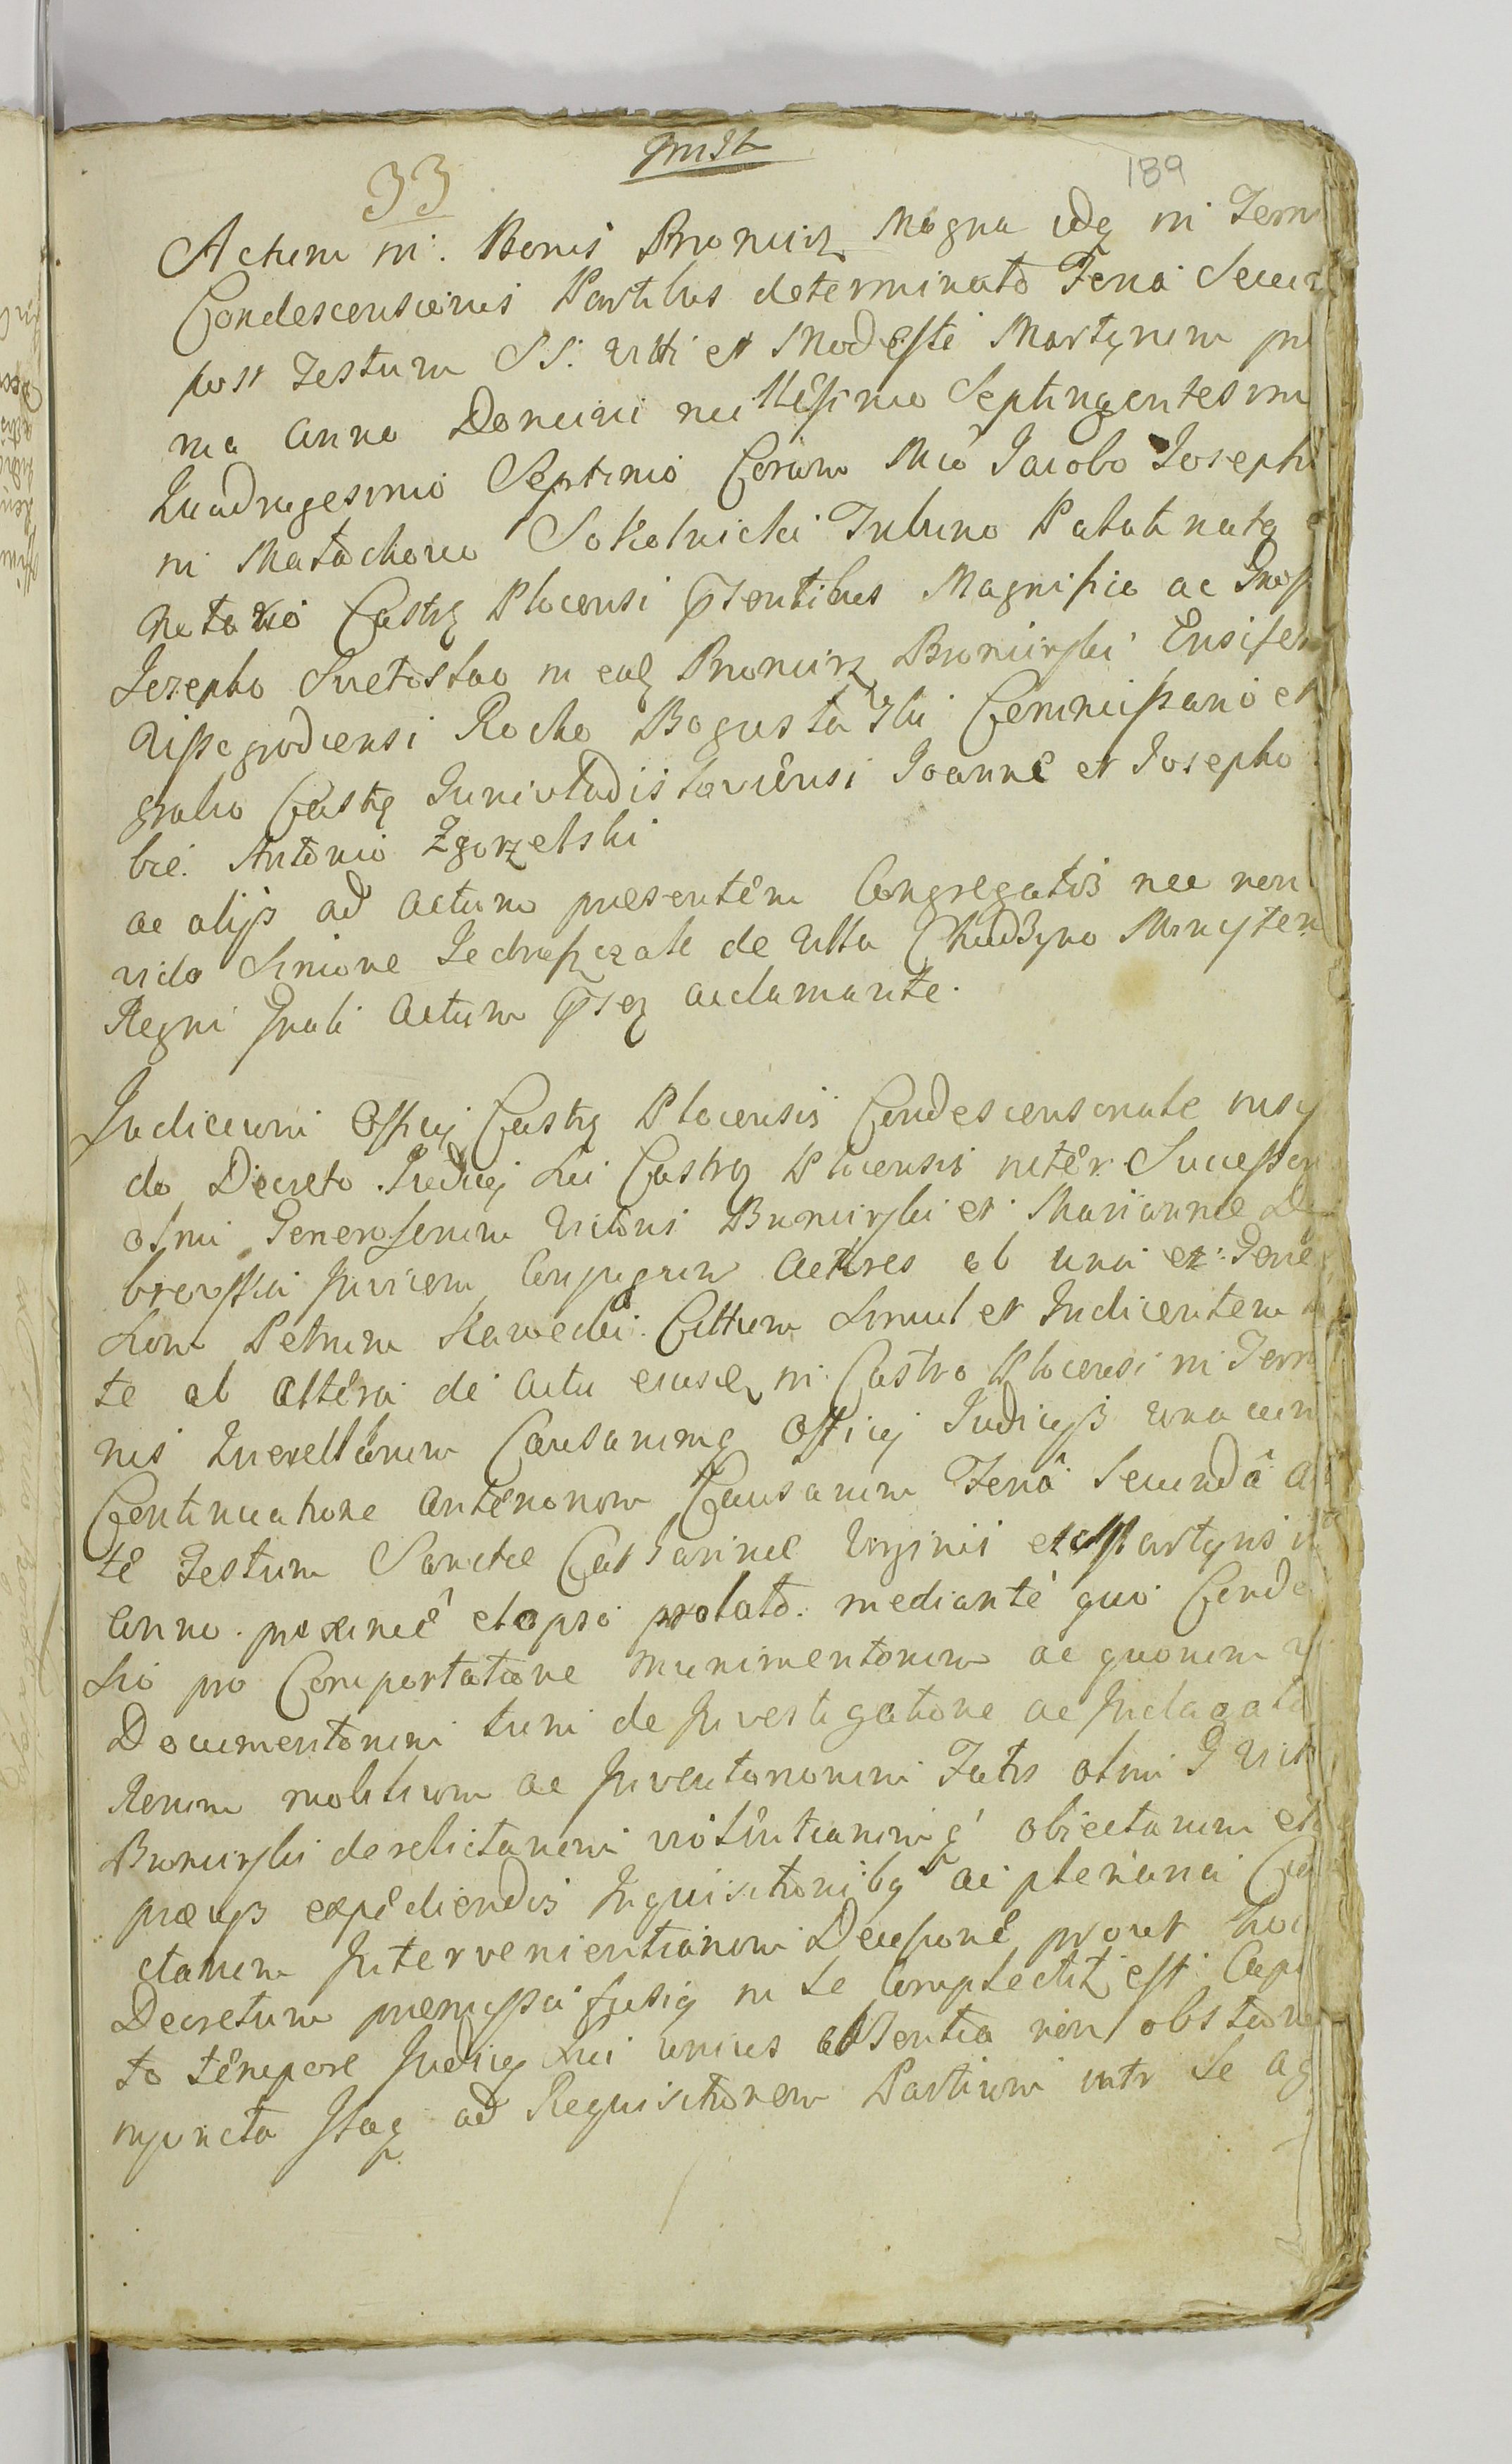 33
189
Actum in Bonis Bromierz Magna idq in Term
Condescensionis Partibus determinato Feria Secu
post Festum SS: Viti et Modesti Martyrum pri
ma Anno Domini millesimo Septingentesimo
Quadragesimo Septimo Coram Mco Jacobo Josepho
in Matachowo Sokolnicki Tribuno Palatinatq
Notario Castrq Plocensi pntibus Magnifico ac
Josepho Swetoslao in eadq Bromierz Bromirski Ensifero
Vissegrodiensi Rocho Bogusławski Commissario et
Castrq Juniwladislaviensi Joanne et Josepho
Antonio Zgorzelski
ac alijs ad actum praesentem Congregatis nec non
vido Simone Jedraszczak de Villa Chudzyno Ministeri
Regni Gnali actum acclamante.
Judicium Officij Castrq Plocensis Condescensionale
do Decreto Judicij Sui Castrq Plocensis inter Successores
olim Generosorum Victoris Bromirski et Mariannae
brewska Invicem Conjugum Actores ab una et Gene
sum Petrum Rawecki Cittum Simul et Indicentem
te ab altera de actu eiusdq in Castro Plocensi in Term
nis Querellarum Causarumq Officij Judicijs una cum
Continuatione anteriorum Causarum Feria Secunda an
te Festum Sanctae Catharinae Virginis et Martyris in
Anno proxime elapso prolato. mediante quo Conde
Sio pro Comportatione munimentorum ac quorumvis
Documentorum tum de Investigatione ac Indagatio
Rerum mobilium ac Inventariorum Fatis olim G Victo
Bromirski derelictarum violentiarumq obiectarum et
praevijs expediendis Inquisitionibq ac plenaria
ctarum Intervenientiarum Decisione prout hoc
Decretum praemissa fusiq in se Complectit est
to tempore Judicij Sui unius absentia non obstan
injuncta Itaq ad Requisitionem Partium intr Se ag